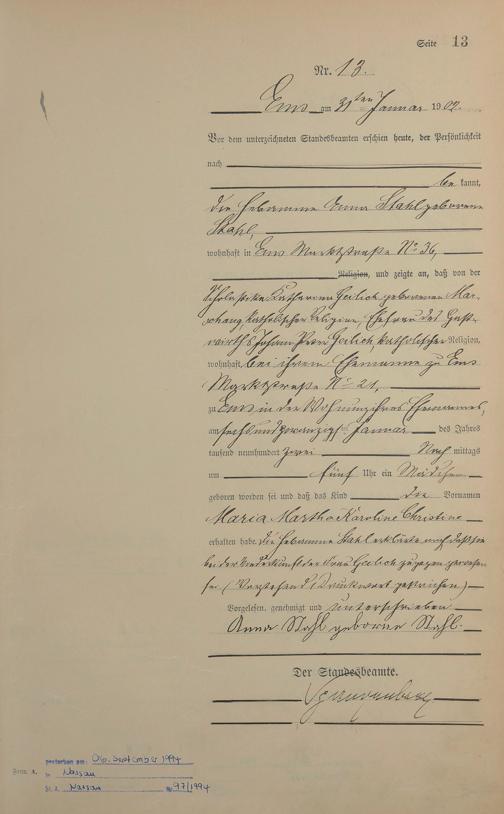 Seite 13
Nr. 13.
Ems am 31ten Januar 1902.
Vor dem unterzeichneten Standesbeamten erschien heute, der Persönlichkeit
nach
be kannt,
die Hebamme Anna Stahl geborene
Stahl,
wohnhaft in Ems Marktstraße No 36,
Religion, und zeigte an, daß von der
Scholastika Katharina Heilich geborenen
katholischer Religion, Ehefrau des Gast-
wirths Johann Peter katholischer Religion,
wohnhaft bei ihrem Ehemanne zu Ems
Marktstraße No 21,
zu Ems in der Wohnung ihres Ehemannes,
am sechsundzwanzigsten Januar des Jahres
tausend neunhundert zwei Nach mittags
um fünf Uhr ein Mädchen
geboren worden sei und daß das Kind die Vornamen
Maria Martha Karoline Christine
erhalten habe. Die Hebamme Stahl erklärte noch daß sie
bei der Niederkunft der Frau zugegen gewesen
sei (Vorstehend 1 Druckwort gestrichen)
Vorgelesen, genehmigt und unterschrieben
Anna Stahl geborne Stahl.
Der Standesbeamte.
gestorben am: 06. September 1994
in Nassau
St. A. Nassau No 97/1994